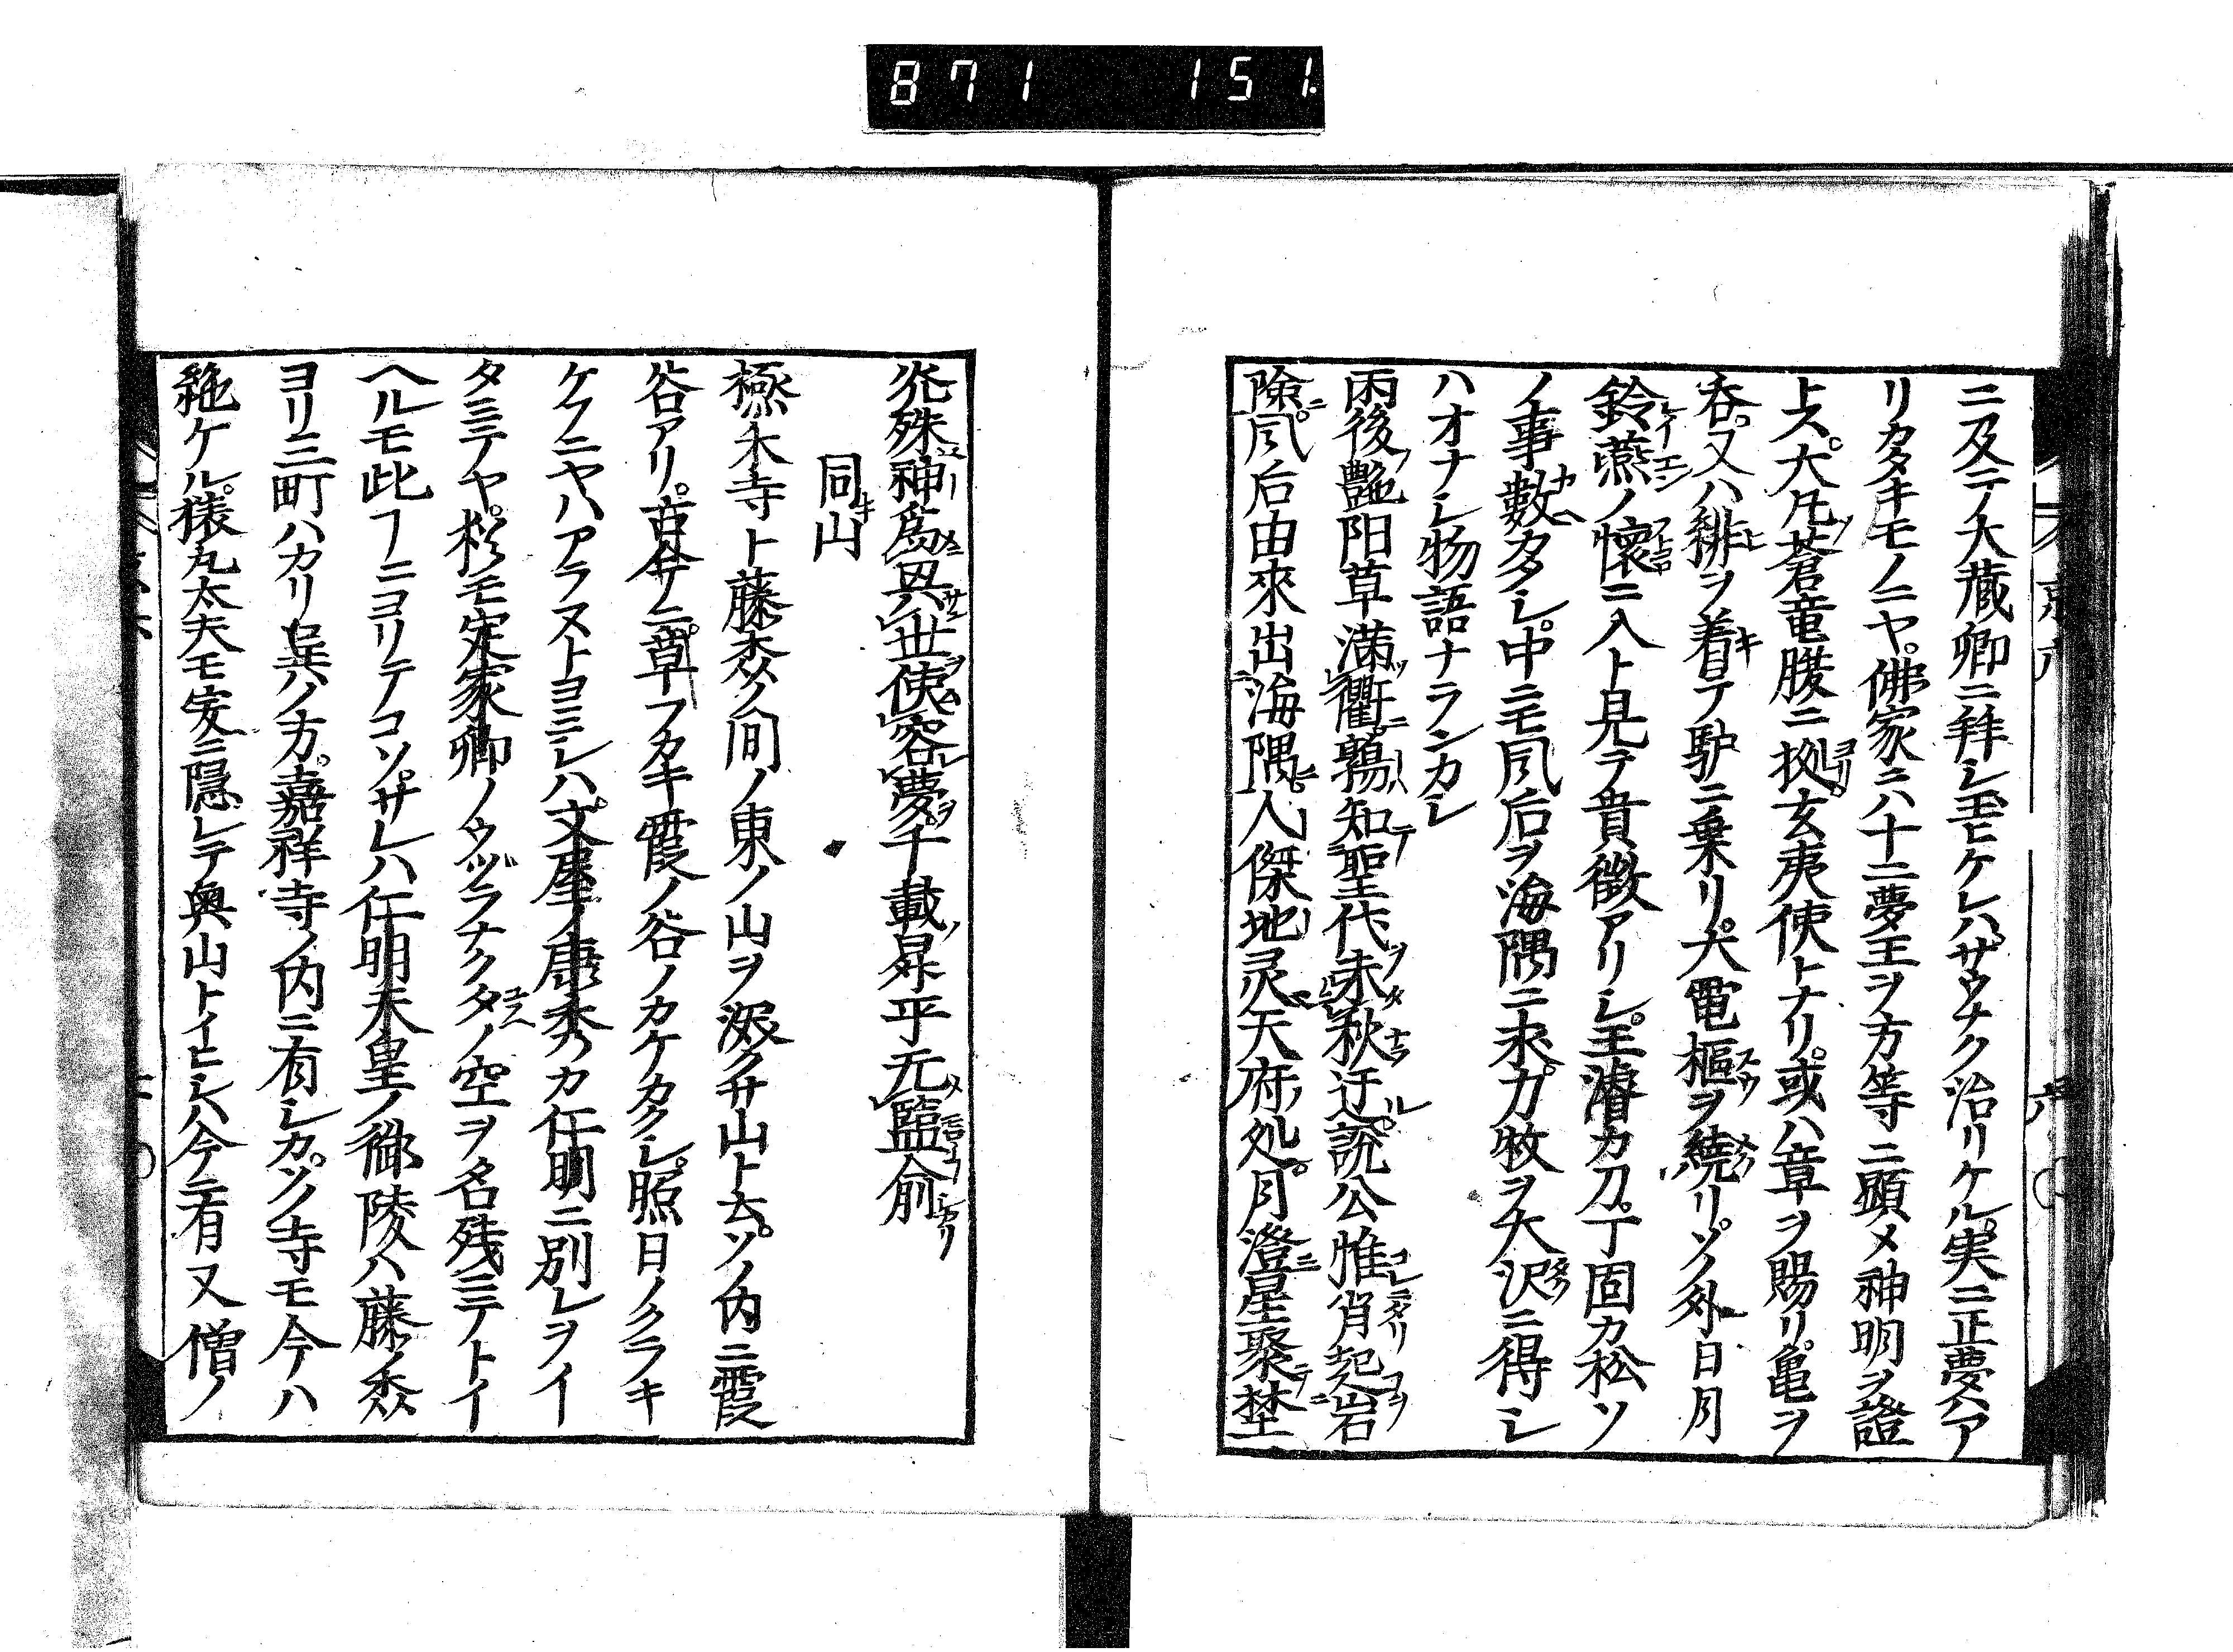 871 151.
ニ及テノ大蔵卿ニ拜シ玉ヒケレハ。サウナク治リケル。実ニ正夢ハア
リカタキモノニヤ。佛家ニハ十二夢王ヲ方等ニ顕メ神明ヲ證
トス。大凡蒼竜腰ニ拠。玄夷使トナリ。或ハ章ヲ賜リ。亀ヲ
呑。又ハ緋ヲ着テ馿ニ乗リ。大電樞ヲ繞リ。ソノ外日月
鈴燕ノ懐ニ入ト見テ貴徴アリシ。王濬カ刀。丁固カ松ソ
ノ事數カタシ。中ニモ風后ヲ海隅ニ求。力牧ヲ大沢ニ得シ
ハオナシ物語ナランカシ
雨後艶阳草満衢鶉知聖代未秋迂説公惟肖起岩
險風后由來出海隅人傑地灵天府処月澄星聚埜
殊神為異世使容夢千載昇平无監俞
同山
極木寺ト藤森ノ間ノ東ノ山ヲ深クサ山ト云。ソノ内ニ霞
谷アリ。古今ニ。草フカキ霞ノ谷ノカケカクシ。照日ノクラキ
ケフニヤハアラヌトヨミシハ。文屋ノ康秀カ仁明ニ別レヲイ
タミテヤ。杉モ定家卿ノウヅラナク夕ノ空ヲ名残ニテトイ
ヘルモ此フニヨリテコソ。サレハ仁明天皇ノ御陵ハ藤ノ森
ヨリ三町ハカリ呉ノ方。嘉祥寺ノ内ニ有シカ。ソノ寺モ今ハ
絶ケル。猿丸太夫モ安ニ隠レテ奥山トイヒシハ今ニ有又僧ノ